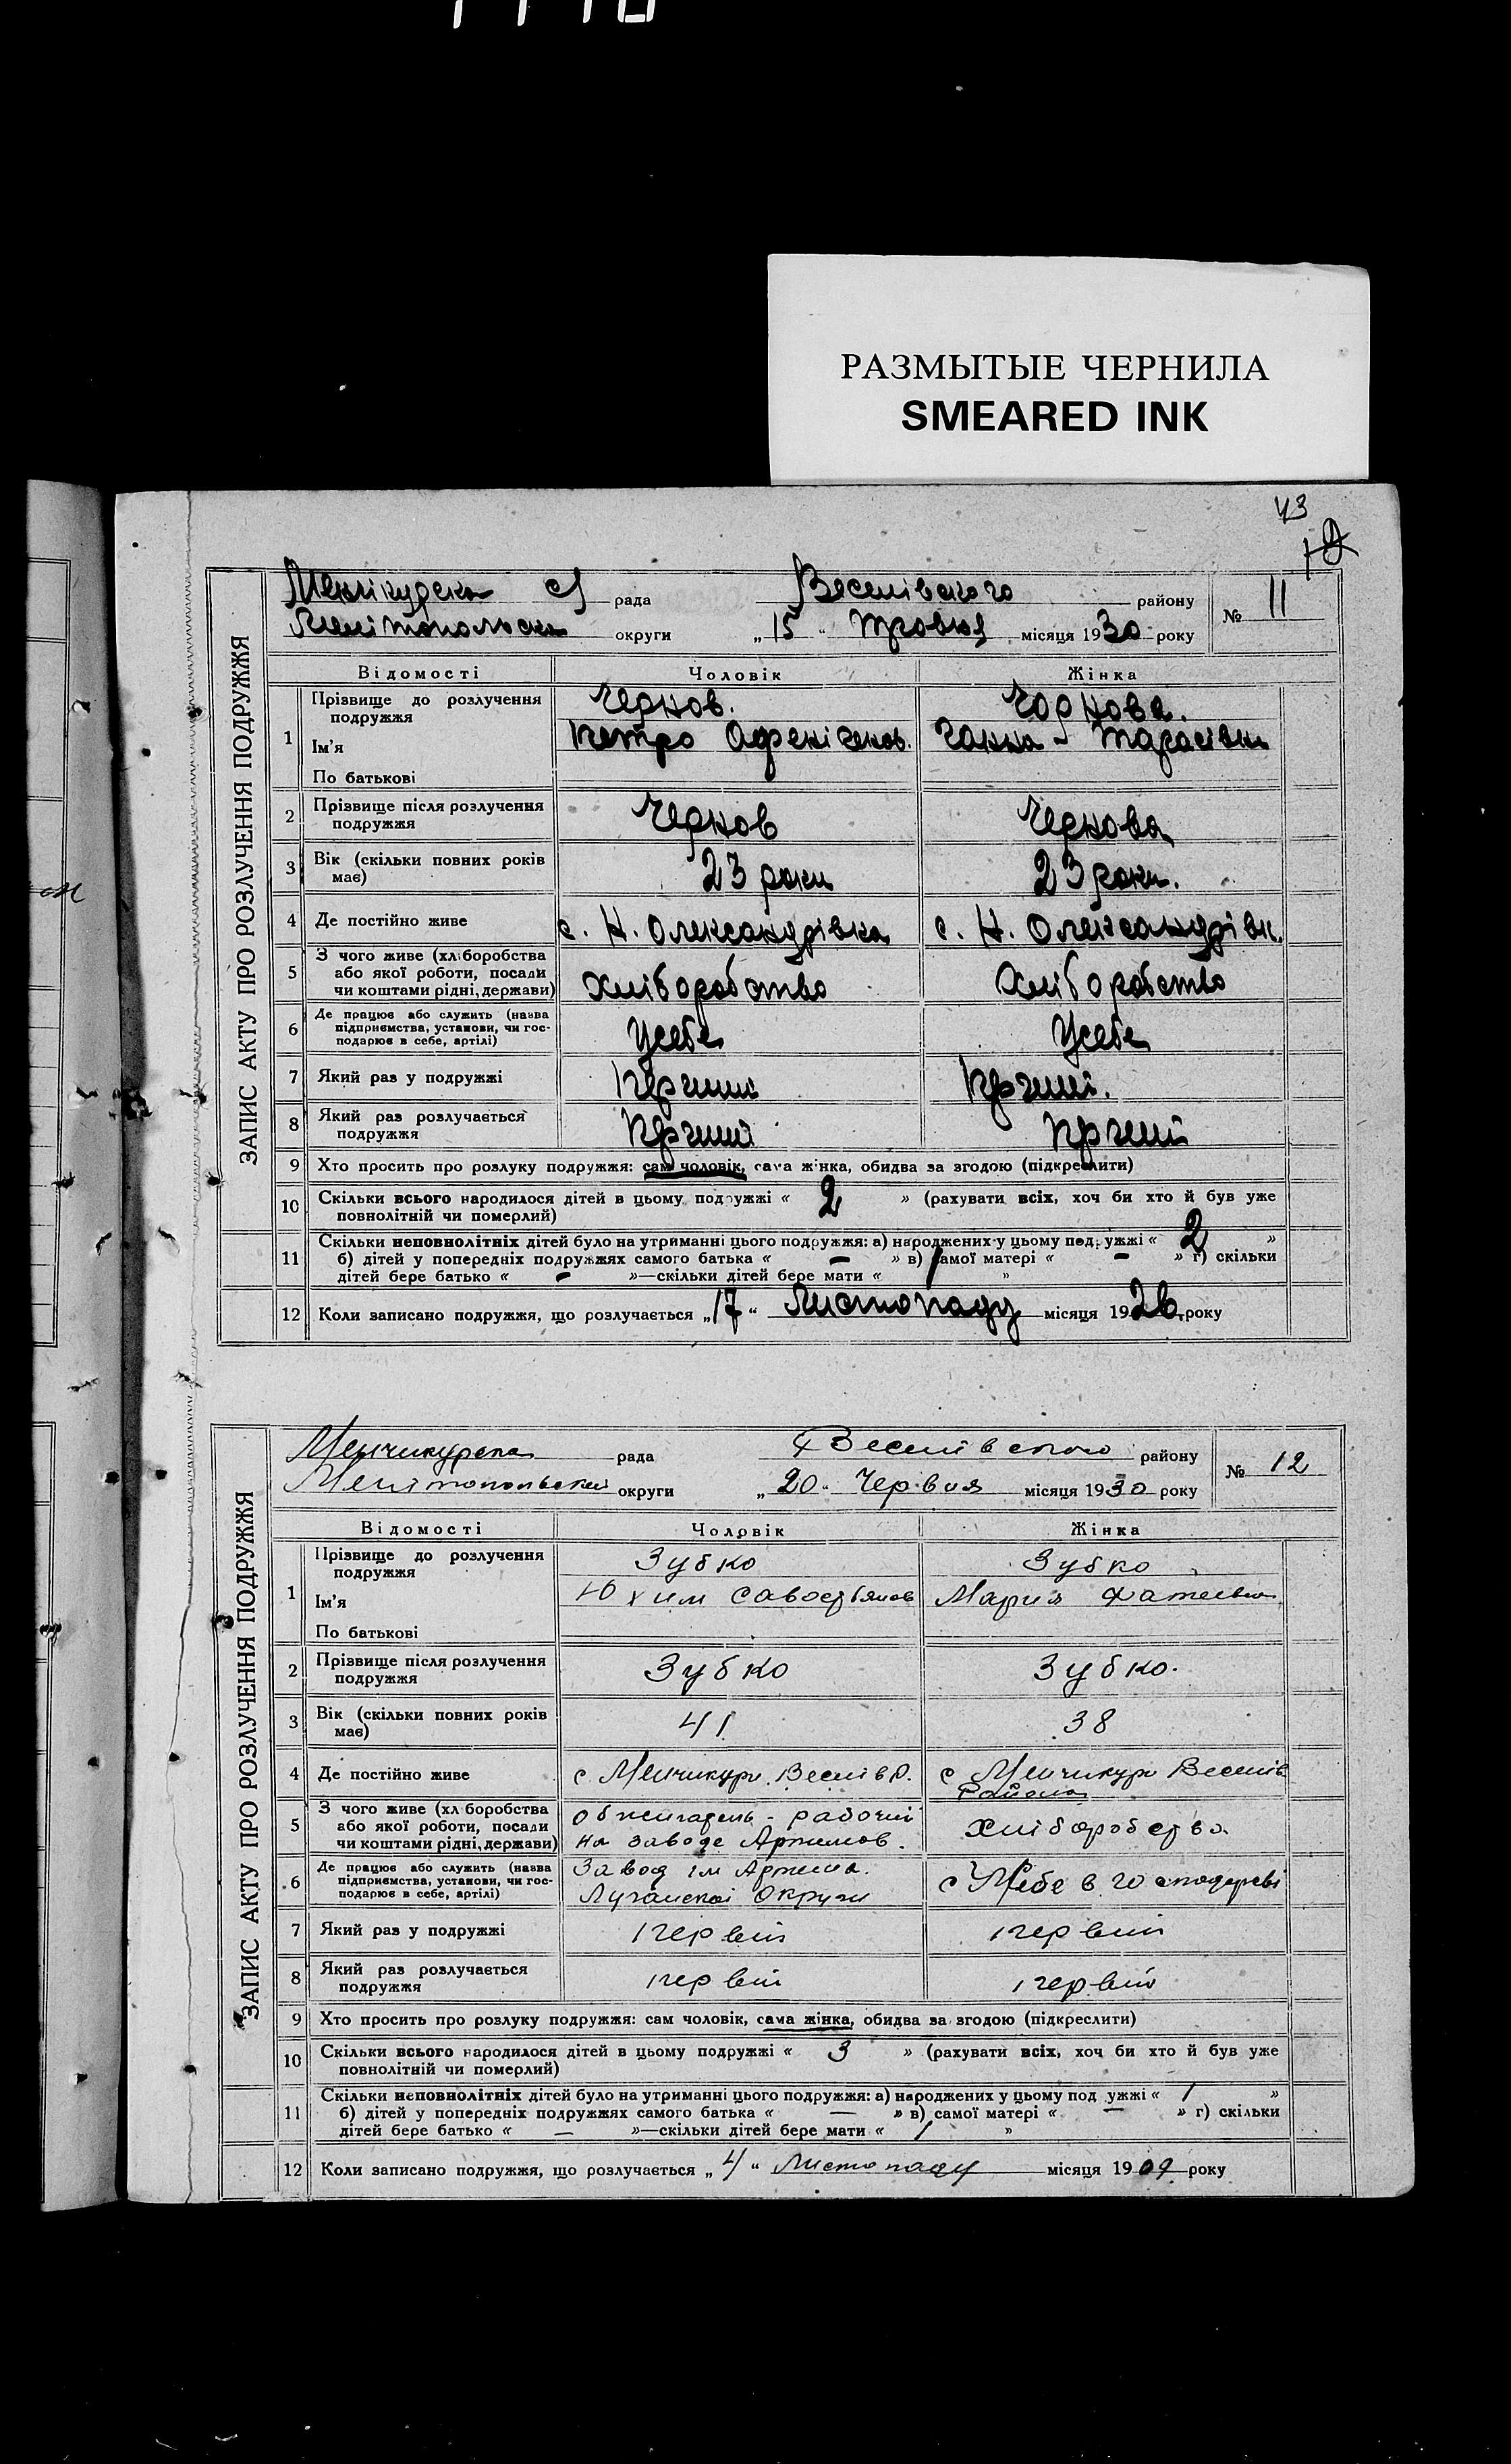 РАЗМЫТЫЕ ЧЕРНИЛА
SMEARED INK
43
ЗАПИС АКТУ ПРО РОЗЛУЧЕННЯ ПОДРУЖЖЯ
Менчикурска с/ рада Веселівського району № 11
Мелітопольска округи „15“ травня місяця 1930 року
Відомості Чоловік Жінка
1 Прізвище до розлучення подружжя Чернов. Чорнова.
Ім'я Петро Ганна - Тарасівна
По батькові
2 Прізвище після розлучення подружжя Чернов Чернова
3 Вік (скільки повних років має) 23 роки 23 роки.
4 Де постійно живе с. Н. Олександрівка с. Н. Олександрівк.
5 З чого живе (хліборобства або якої роботи, посади чи коштами рідні, держави) Хліборобство Хліборобство
6 Де працює або служить (назва підприємства, установи, чи господарює в себе, артілі) Усебе Усебе
7 Який раз у подружжі
8 Який раз розлучається подружжя
9 Хто просить про розлуку подружжя: сам чоловік, сама жінка, обидва за згодою (підкреслити)
10 Скільки всього народилося дітей в цьому подружжі « 2 » (рахувати всіх, хоч би хто й був уже
повнолітній чи померлий)
11 Скільки неповнолітніх дітей було на утриманні цього подружжя: а) народжених у цьому подружжі « 2 »
б) дітей у попередніх подружжях самого батька « — » в) самої матері « — » г) скільки
дітей бере батько « — »—скільки дітей бере мати « »
12 Коли записано подружжя, що розлучається „17“ Листопаду місяця 1926 року
ЗАПИС АКТУ ПРО РОЗЛУЧЕННЯ ПОДРУЖЖЯ
Менчикурска рада Веселівського району № 12
Мелітопольскої округи „20“ Червня місяця 1930 року
Відомості Чоловік Жінка
1 Прізвище до розлучення подружжя Зубко Зубко
Ім'я Юхим Савостьянов Мария Фатеевна
По батькові
2 Прізвище після розлучення подружжя Зубко Зубко.
3 Вік (скільки повних років має) 41 38
4 Де постійно живе с. Менчикури Веселів р. с Менчикури Веселів
района
5 З чого живе (хліборобства або якої роботи, посади чи коштами рідні, держави) рабочий Хліборобство
на заводе Артемов.
6 Де працює або служить (назва підприємства, установи, чи господарює в себе, артілі) Завод ім Артема. Себе в господарстві
Луганской Округи
7 Який раз у подружжі 1 первий 1 первий
8 Який раз розлучається подружжя первий 1 первий
9 Хто просить про розлуку подружжя: сам чоловік, сама жінка, обидва за згодою (підкреслити)
10 Скільки всього народилося дітей в цьому подружжі « 3 » (рахувати всіх, хоч би хто й був уже
повнолітній чи померлий)
11 Скільки неповнолітніх дітей було на утриманні цього подружжя: а) народжених у цьому подружжі « 1 »
б) дітей у попередніх подружжях самого батька « — » в) самої матері « — » г) скільки
дітей бере батько « — »—скільки дітей бере мати « 1 »
12 Коли записано подружжя, що розлучається „4“ Листопаду місяця 1909 року